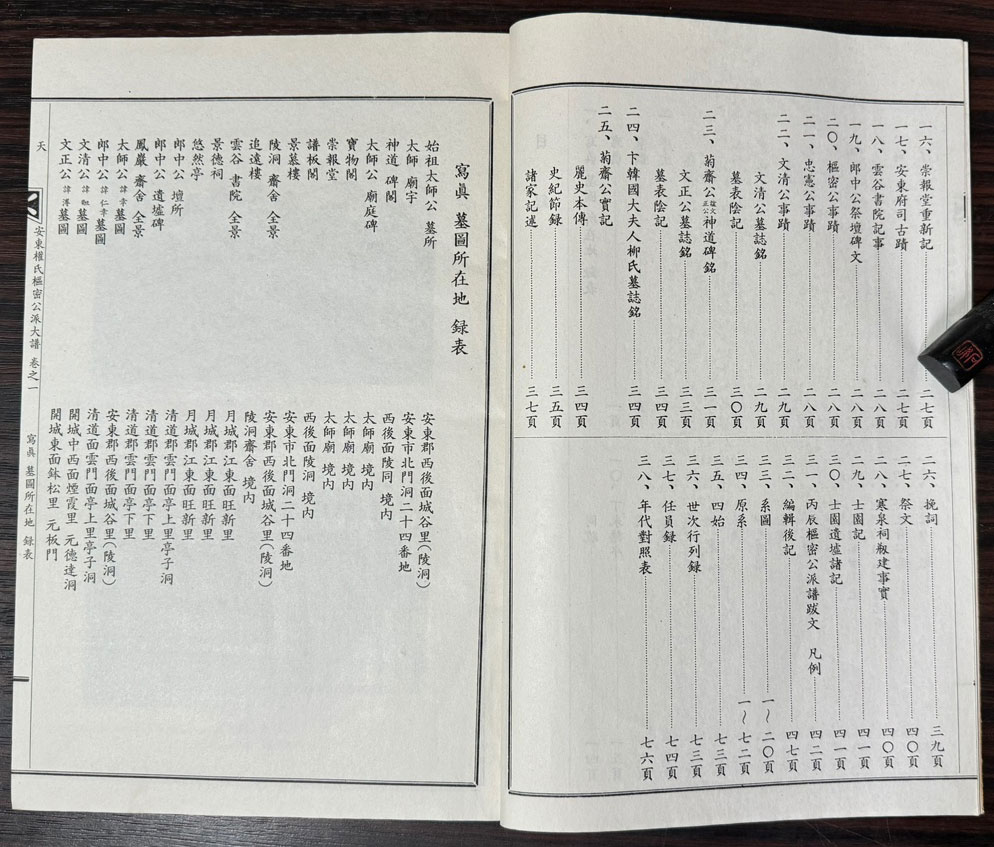 一六、崇報堂重新記 二七頁
一七、安東府司古蹟 二七頁
一八、雲谷書院記事 二八頁
一九、郎中公祭壇碑文 二八頁
二〇、樞密公事蹟 二八頁
二一、忠憲公事蹟 二八頁
二二、文清公事蹟 二九頁
文清公墓誌銘 二九頁
墓表陰記 三〇頁
二三、菊齋公諡文正公神道碑銘 三一頁
文正公墓誌銘 三三頁
墓表陰記 三四頁
二四、卞韓國大夫人柳氏墓誌銘 三四頁
二五、菊齋公實記
麗史本傳 三四頁
史紀節録 三五頁
諸家記述 三七頁
二六、挽詞 三九頁
二七、祭文 四〇頁
二八、寒泉祠刱建事實 四〇頁
二九、士園記 四一頁
三〇、士園遺墟諸記 四一頁
三一、丙辰樞密公派譜跋文 凡例 四二頁
三二、編輯後記 四七頁
三三、系圖 一~二〇頁
三四、原系 一~七二頁
三五、四始 七三頁
三六、世次行列録 七三頁
三七、任員録 七四頁
三八、年代對照表 七六頁
寫眞 墓圖所在地 録表
始祖太師公 墓所 安東郡西後面城谷里(陵洞)
太師 廟宇 安東市北門洞二十四番地
神道 碑閣 西後面陵同 境内
太師公 廟庭碑 太師廟 境内
寶物閣 太師廟 境内
崇報堂 太師廟 境内
譜板閣 西後面陵洞 境内
景慕樓 安東市北門洞二十四番地
陵洞 齋舍 全景 安東郡西後面城谷里(陵洞)
追遠樓 陵洞齋舍 境内
雲谷 書院 全景 月城郡江東面旺新里
景德祠 月城郡江東面旺新里
悠然亭 月城郡江東面旺新里
郎中公 壇所 清道郡雲門面亭上里亭子洞
郎中公 遺墟碑 清道郡雲門面亭下里
鳳巖 齋舍 全景 清道郡雲門面亭下里
太師公 諱幸 墓圖 安東郡西後面城谷里(陵洞)
郎中公 諱仁幸 墓圖 清道面雲門面亭上里亭子洞
文清公 諱㫜 墓圖 開城中西面煙霞里 元德達洞
文正公 諱溥 墓圖 開城東面鉢松里 元板門
天
安東權氏樞密公派大譜 卷之一
寫眞 墓圖所在地 録表